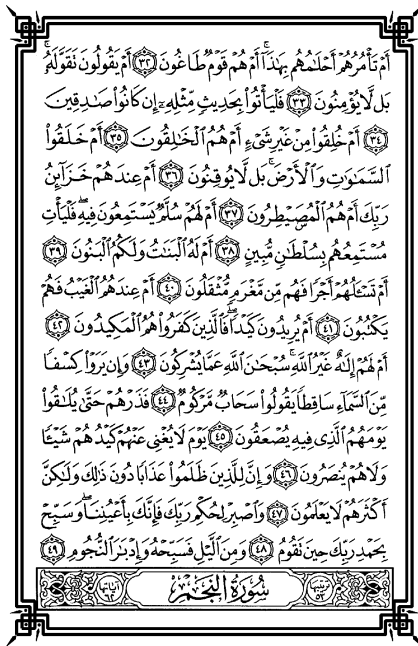 أَمْ تَأْمُرُهُمْ أَحْلَامُهُم بِهَٰذَا ۚ أَمْ هُمْ قَوْمٌ طَاغُونَ ٣٢ أَمْ يَقُولُونَ تَقَوَّلَهُ ۚ
بَل لَّا يُؤْمِنُونَ ٣٣ فَلْيَأْتُوا۟ بِحَدِيثٍ مِّثْلِهِۦٓ إِن كَانُوا۟ صَادِقِينَ
٣٤ أَمْ خُلِقُوا۟ مِنْ غَيْرِ شَىْءٍ أَمْ هُمُ الْخَالِقُونَ ٣٥ أَمْ خَلَقُوا۟
السَّمَاوَاتِ وَالْأَرْضَ ۚ بَل لَّا يُوقِنُونَ ٣٦ أَمْ عِندَهُمْ خَزَآئِنُ
رَبِّكَ أَمْ هُمُ الْمُصَيْطِرُونَ ٣٧ أَمْ لَهُمْ سُلَّمٌ يَسْتَمِعُونَ فِيهِ ۖ فَلْيَأْتِ
مُسْتَمِعُهُم بِسُلْطَانٍ مُّبِينٍ ٣٨ أَمْ لَهُ الْبَنَاتُ وَلَكُمُ الْبَنُونَ ٣٩
أَمْ تَسْـَٔلُهُمْ أَجْرًا فَهُم مِّن مَّغْرَمٍ مُّثْقَلُونَ ٤٠ أَمْ عِندَهُمُ الْغَيْبُ فَهُمْ
يَكْتُبُونَ ٤١ أَمْ يُرِيدُونَ كَيْدًا ۖ فَالَّذِينَ كَفَرُوا۟ هُمُ الْمَكِيدُونَ ٤٢
أَمْ لَهُمْ إِلَٰهٌ غَيْرُ اللَّهِ ۚ سُبْحَانَ اللَّهِ عَمَّا يُشْرِكُونَ ٤٣ وَإِن يَرَوْا۟ كِسْفًا
مِّنَ السَّمَآءِ سَاقِطًا يَقُولُوا۟ سَحَابٌ مَّرْكُومٌ ٤٤ فَذَرْهُمْ حَتَّىٰ يُلَاقُوا۟
يَوْمَهُمُ الَّذِى فِيهِ يُصْعَقُونَ ٤٥ يَوْمَ لَا يُغْنِى عَنْهُمْ كَيْدُهُمْ شَيْـًٔا
وَلَا هُمْ يُنصَرُونَ ٤٦ وَإِنَّ لِلَّذِينَ ظَلَمُوا۟ عَذَابًا دُونَ ذَٰلِكَ وَلَٰكِنَّ
أَكْثَرَهُمْ لَا يَعْلَمُونَ ٤٧ وَاصْبِرْ لِحُكْمِ رَبِّكَ فَإِنَّكَ بِأَعْيُنِنَا ۖ وَسَبِّحْ
بِحَمْدِ رَبِّكَ حِينَ تَقُومُ ٤٨ وَمِنَ الَّيْلِ فَسَبِّحْهُ وَإِدْبَارَ النُّجُومِ ٤٩
ترتيبها ٥٣ سُورَةُ النَّجْمِ آياتها ٦٢